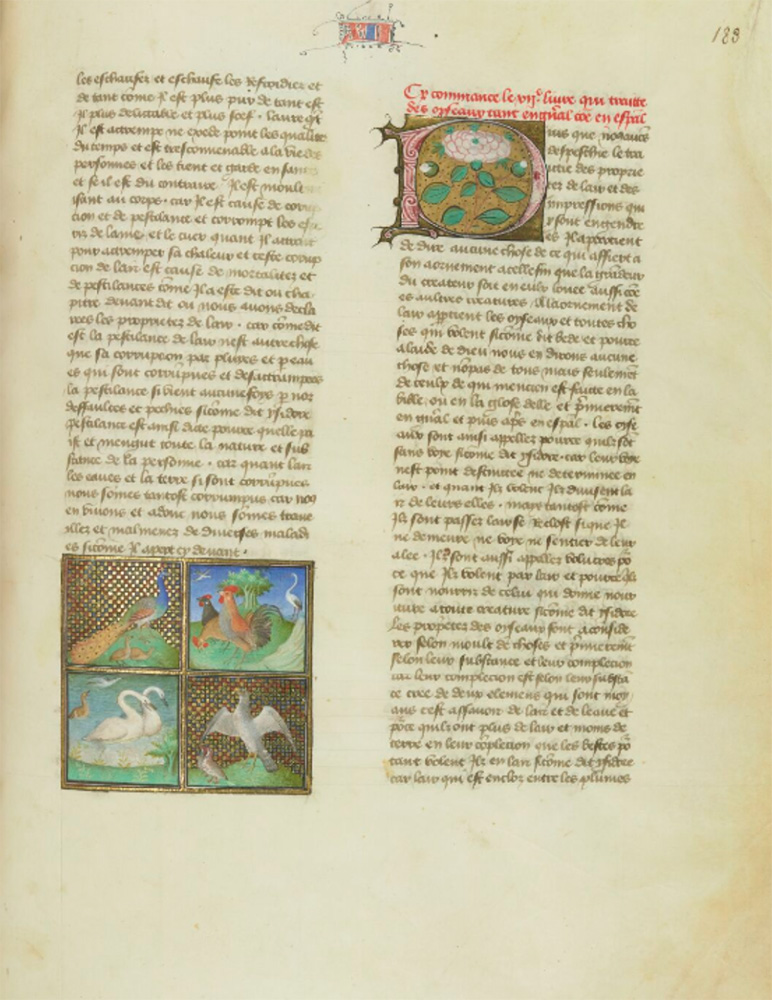 183
les eschaufer et eschaufe les refroidier et
de tant come il est plus pur de tant est
il plus delictable et plus soef . laire qi
il est attrempe ne excede point les qualite
du temps et est trescommenable a la vie des
personnes et les tient et garde en sante
et se il est du contraire Il est moult
nuisant au corps . car il est cause de cor
cion et de pestilance et corrompt les es
riz de lame et le cuer quant Il attrait
pour attremper sa chaleur et ceste corrup
cion de lair est cause de mortalitez et
de pestilances come Il a este dit ou cha
pitre devant dit ou nous avons decla
rees les proprietez de lair . car come dit
est la pestilance de lair nest autre chose
que sa corrupcion par pluyes et par eau
es qui sont corrupues et desattrampees
la pestilance si vient aucunesfoys p noz
deffaultes et pechies sicome dit ysidore
pestilance est ainsi dicte pource quelle pa
ist et mengut toute la nature et sub
stance de la personne . car quant lair
les eaues et la terre si sont corrupues
nous somes tantost corrumpus car nous
en vivons et adonc nous somes trava
illez et malmenez de diverses malad
es sicome Il apert cy devant .
Cy commance le xii.e livre qui traitte
des oyseaux tant en gnal coe en espal
Puis que no avons
despesche le tra
ictie des proprie
tez de lair et des
impressions qui
y sont engendre
es Il apartient
de dire aucune chose de ce qui affiert a
son aornement a celle fin que la grandeur
du createur soit en eulx louee aussi coe
es aultres creatures . A laornement de
lair aptient les oyseaux et toutes cho
ses qui volent sicome dit bede et pource
a laide de dieu nous en dirons aucune
chose et non pas de tous mais seulemet
de ceulx de qui mencion est faicte en la
bible ou en la glose delle et pmieremt
en gnal et puis aps en espal . les oyse
aulx sont ainsi appellez pource quilz sot
sans voye sicome dit ysidore . car leur voye
nest point destinctee ne determinee en
lair . et quant Ilz volent Ilz divisent la
ir de leurs elles . mais tantost come
Ilz sont passez lair se reclost si que Il
ne demeure ne voye ne sentier de leur
alee . Ilz sont aussi appellez volucres po
ce que Ilz volent par lair et pource Ilz
sont nourriz de celui qui donne nour
iture a toute creature sicome dit ysidore
les propetez des oyseaux sont a conside
rer selon moult de choses et pmieremt
selon leur substance et leur complecion
car leur complecion est selon leur substa
ce cree de deux elemens qui sont moy
ans cest assavoir de lair et de leaue et
poce quilz ont plus de lair et moins de
terre en leur coplecion que les bestes po
tant volent Ilz en lair sicome dit ysidore
car lair qui est enclox entre les plumes